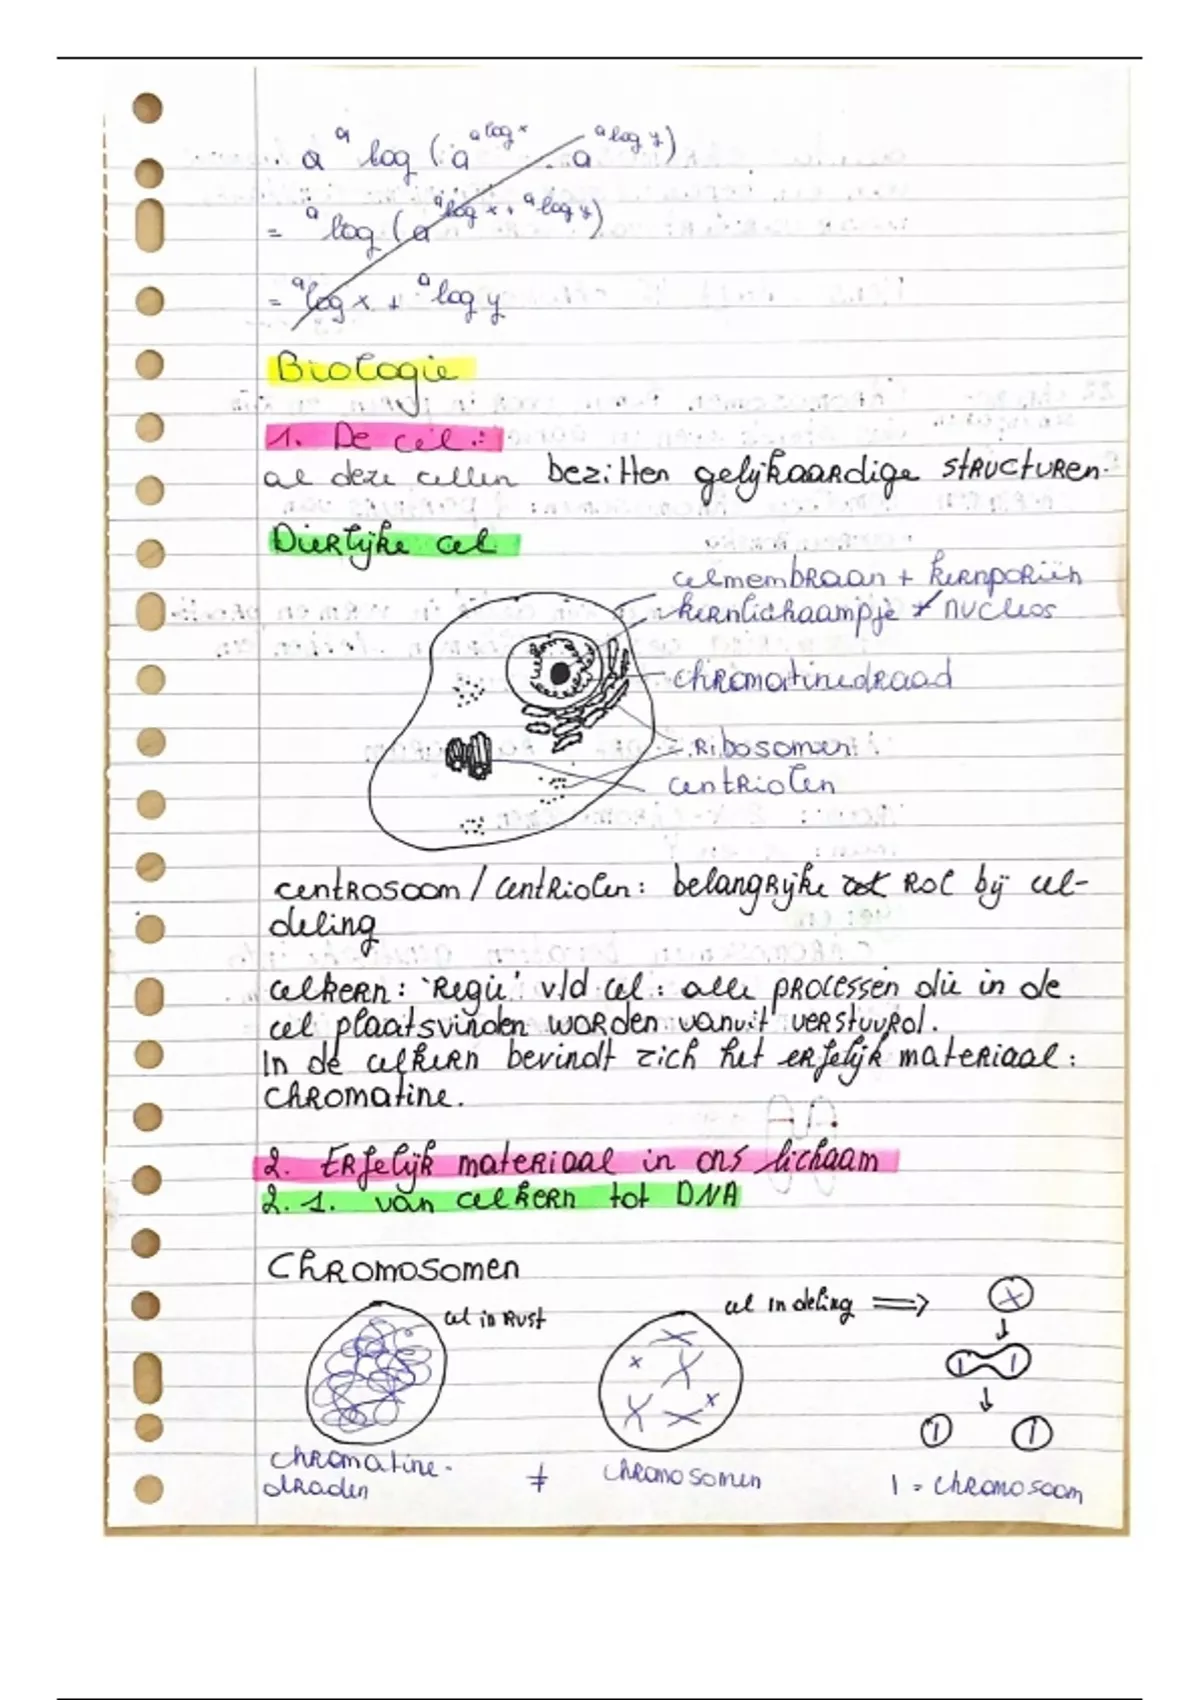 a ᵃlog (a^ᵃlog x a^ᵃlog y)
= ᵃlog (a^ᵃlog x + ᵃlog y)
= ᵃlog x + ᵃlog y
Biologie
1. De cel:
al deze cellen bezitten gelijkaardige structuren.
Dierlijke cel
celmembraan + kernporiën
kernlichaampje + nucleos
chromatinedraad
Ribosomen
centriolen
centrosoom / centriolen: belangrijke rol bij cel-
deling
celkern: 'Regie' v/d cel: alle processen die in de
cel plaatsvinden worden vanuit verstuurd.
In de celkern bevindt zich het erfelijk materiaal:
chromatine.
2. Erfelijk materiaal in ons lichaam
2.1. van celkern tot DNA
Chromosomen
cel in Rust
cel in deling ⇒
chromatine-
draden
≠
chromosomen
I = chromosoom